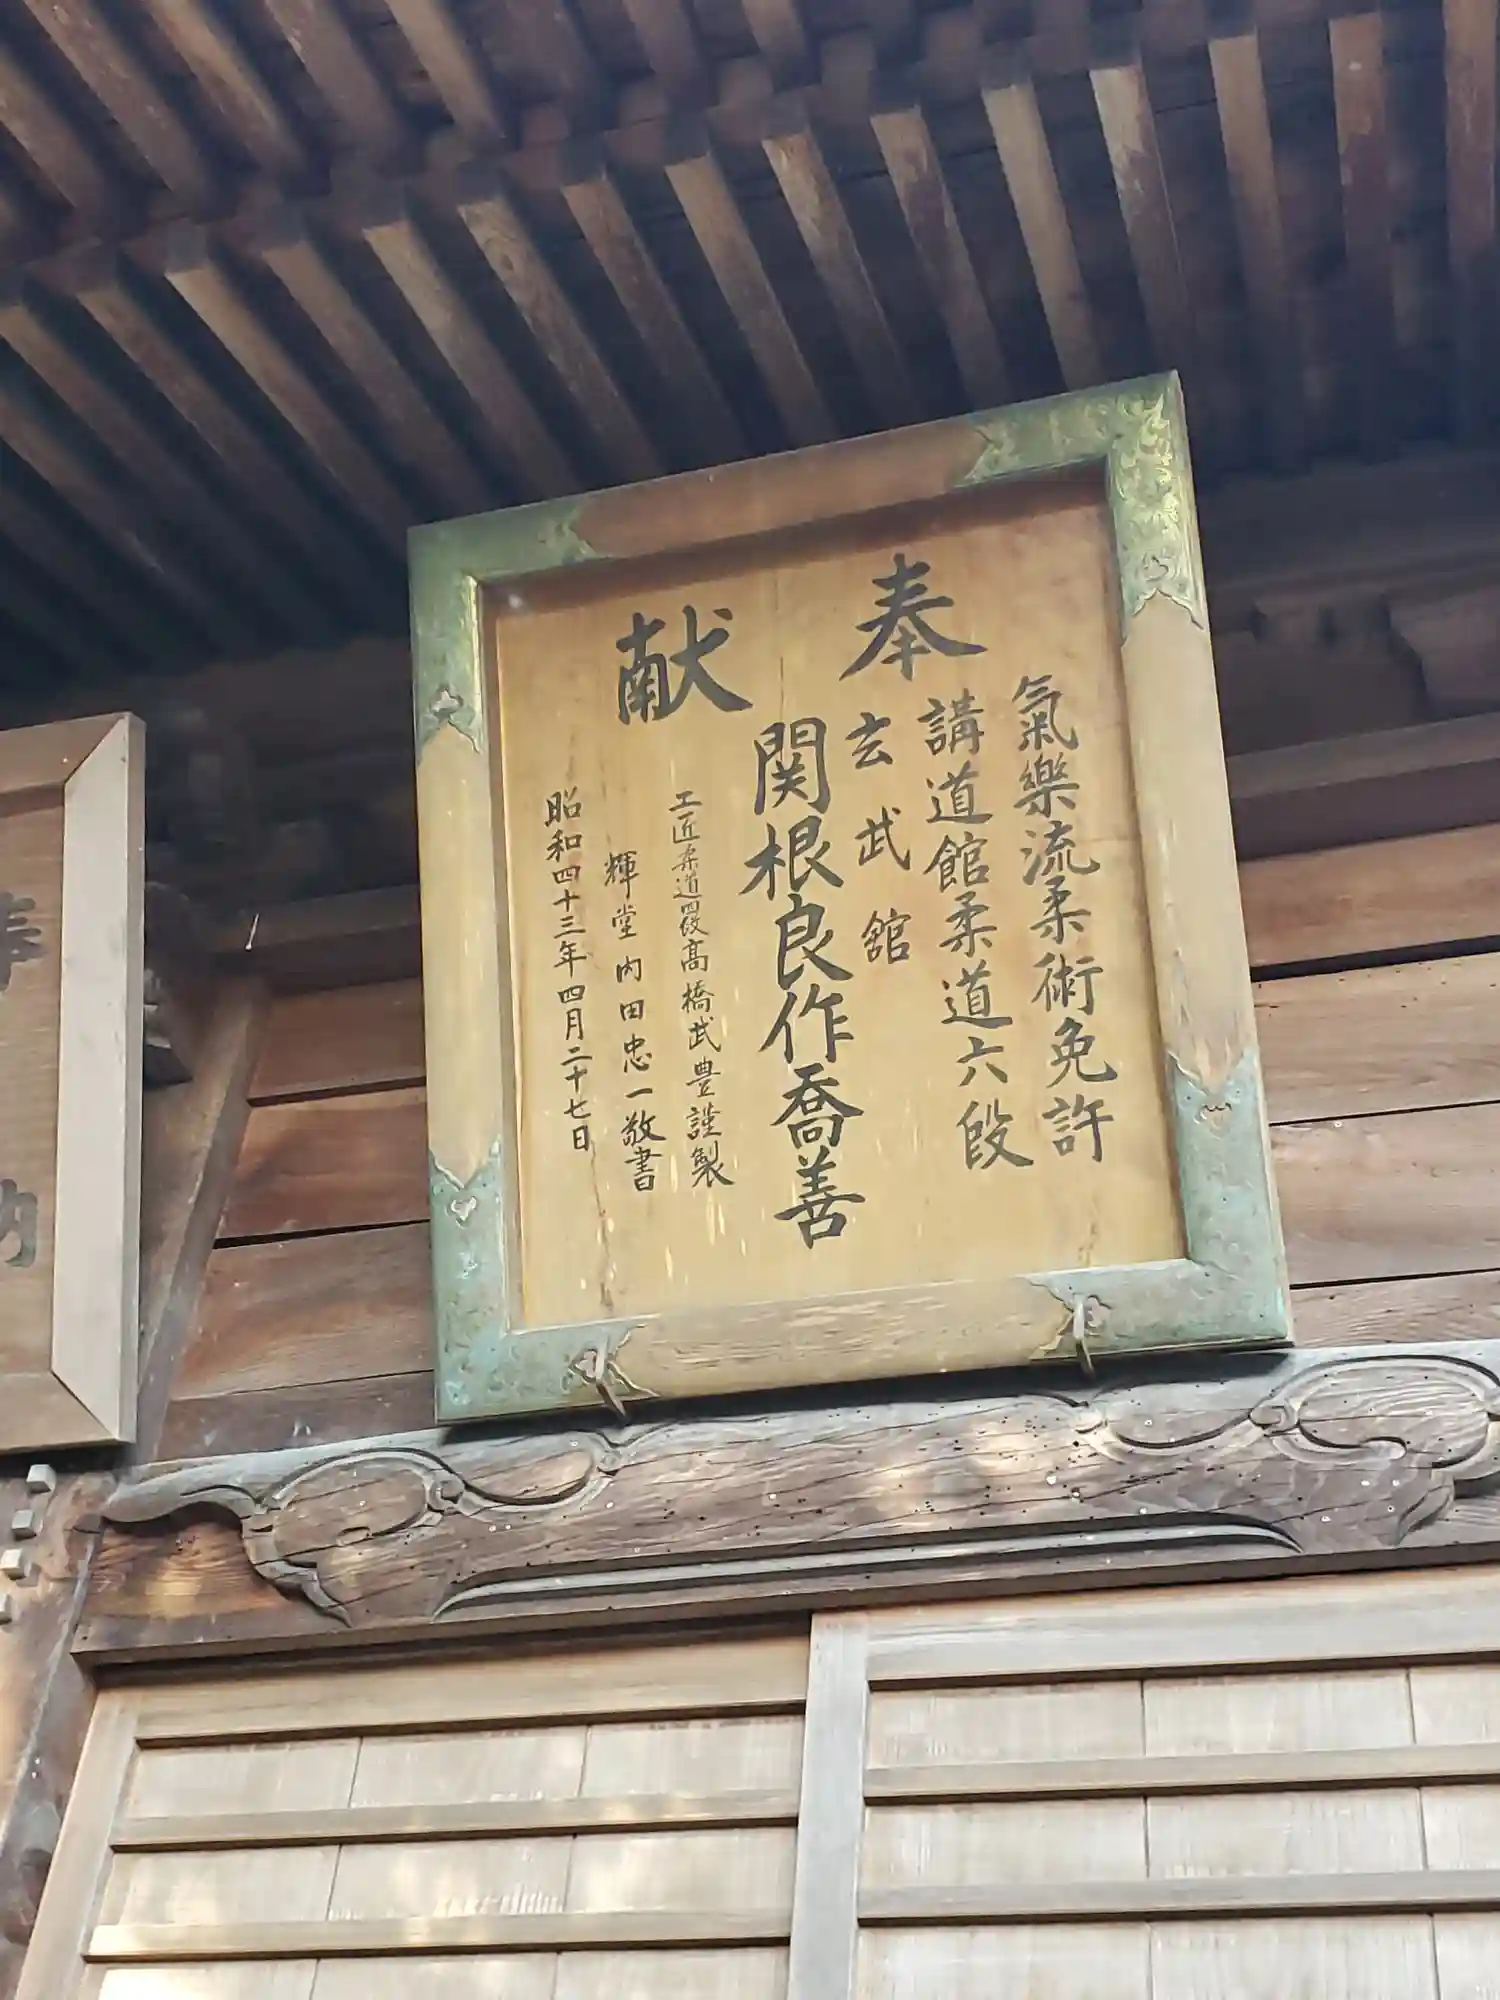 奉献
氣樂流柔術免許
講道館柔道六段
玄武舘
関根良作喬善
工匠柔道四段髙橋武豊謹製
輝堂内田忠一敬書
昭和四十三年四月二十七日
奉
納